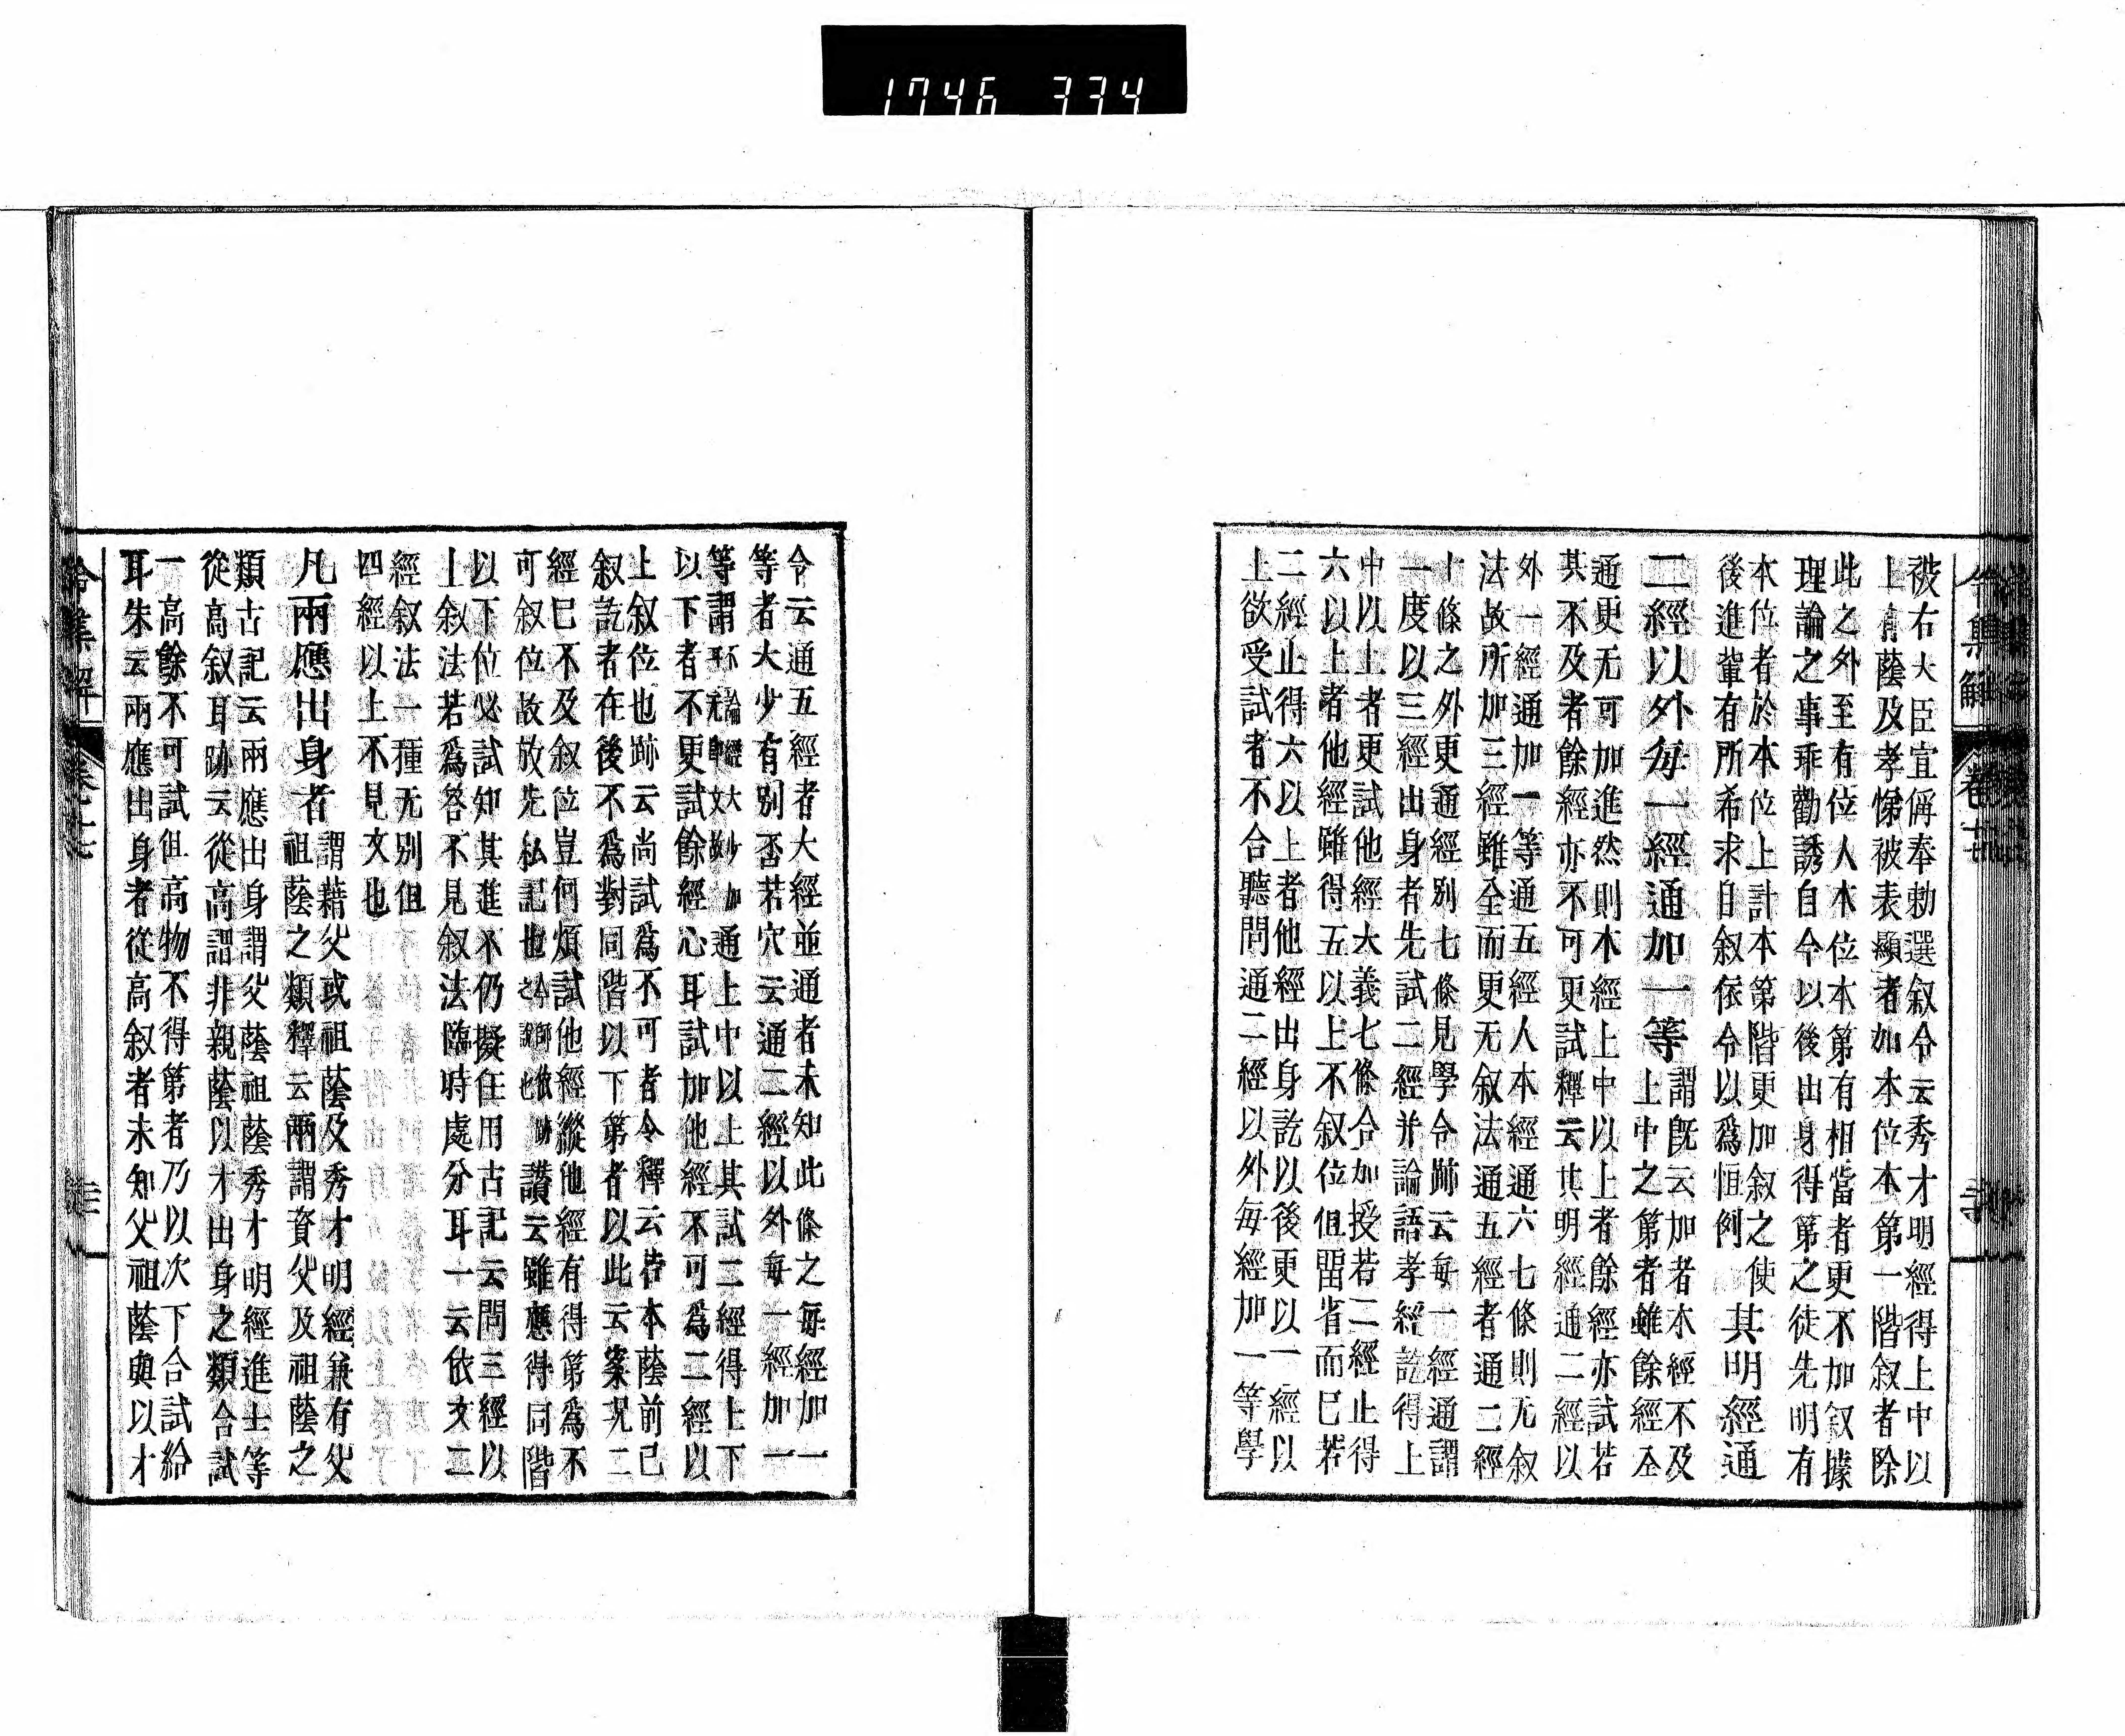 1746 334
被右大臣宣偁奉勅選叙令云秀才明經得上中以
上有蔭及孝悌被表顯者如本位本第一階叙者除
此之外至有位人本位本第有相當者更不加叙據
理論之事乖勸誘自今以後出身得第之徒先明有
本位者於本位上計本第階更加叙之使
後進輩有所希求自叙依令以爲恒例
其明經通
二經以外每一經通加一等
謂旣云加者本經不及
上中之第者雖餘經全
通更无可加進然則本經上中以上者餘經亦試若
其不及者餘經亦不可更試釋云其明經通二經以
外一經通加一等通五經人本經通六七條則无叙
法故所加三經雖全而更无叙法通五經者通二經
十條之外更通經別七條見學令跡云每一經通謂
一度以三經出身者先試二經并論語孝經訖得上
中以上者更試他經大義七條合加授若二經止得
六以上者他經雖得五以上不叙位但留省而已若
二經止得六以上者他經出身訖以後更以一經以
上欲受試者不合聽問通二經以外每經加一等學
令集解 卷十七
令云通五經者大經並通者未知此條之每經加一
等者大少有別否若穴云通二經以外每一經加一
等謂不論經大少
通上中以上其試二經得上下
以下者不更試餘經心耳試加他經不可爲二經以
上叙位也跡云尚試爲不可者令釋云若本蔭前已
叙訖者在後不爲對同階以下第者以此云案况二
經已不及叙位豈何煩試他經縱他經有得第爲不
可叙位故放先私記也
讃云雖應得同階
以下位必試知其進不仍擬任用古記云問三經以
上叙法若爲答不見叙法臨時處分耳一云依文二
經叙法一種无別但
四經以上不見文也
凡兩應出身者
謂藉父或祖蔭及秀才明經兼有父
祖蔭之類釋云兩謂資父及祖蔭之
類古記云兩應出身謂父蔭祖蔭秀才明經進士等
從高叙耳跡云從高謂非親蔭以才出身之類合試
一高餘不可試但高物不得第者乃以次下合試給
耳朱云兩應出身者從高叙者未知父祖蔭與以才